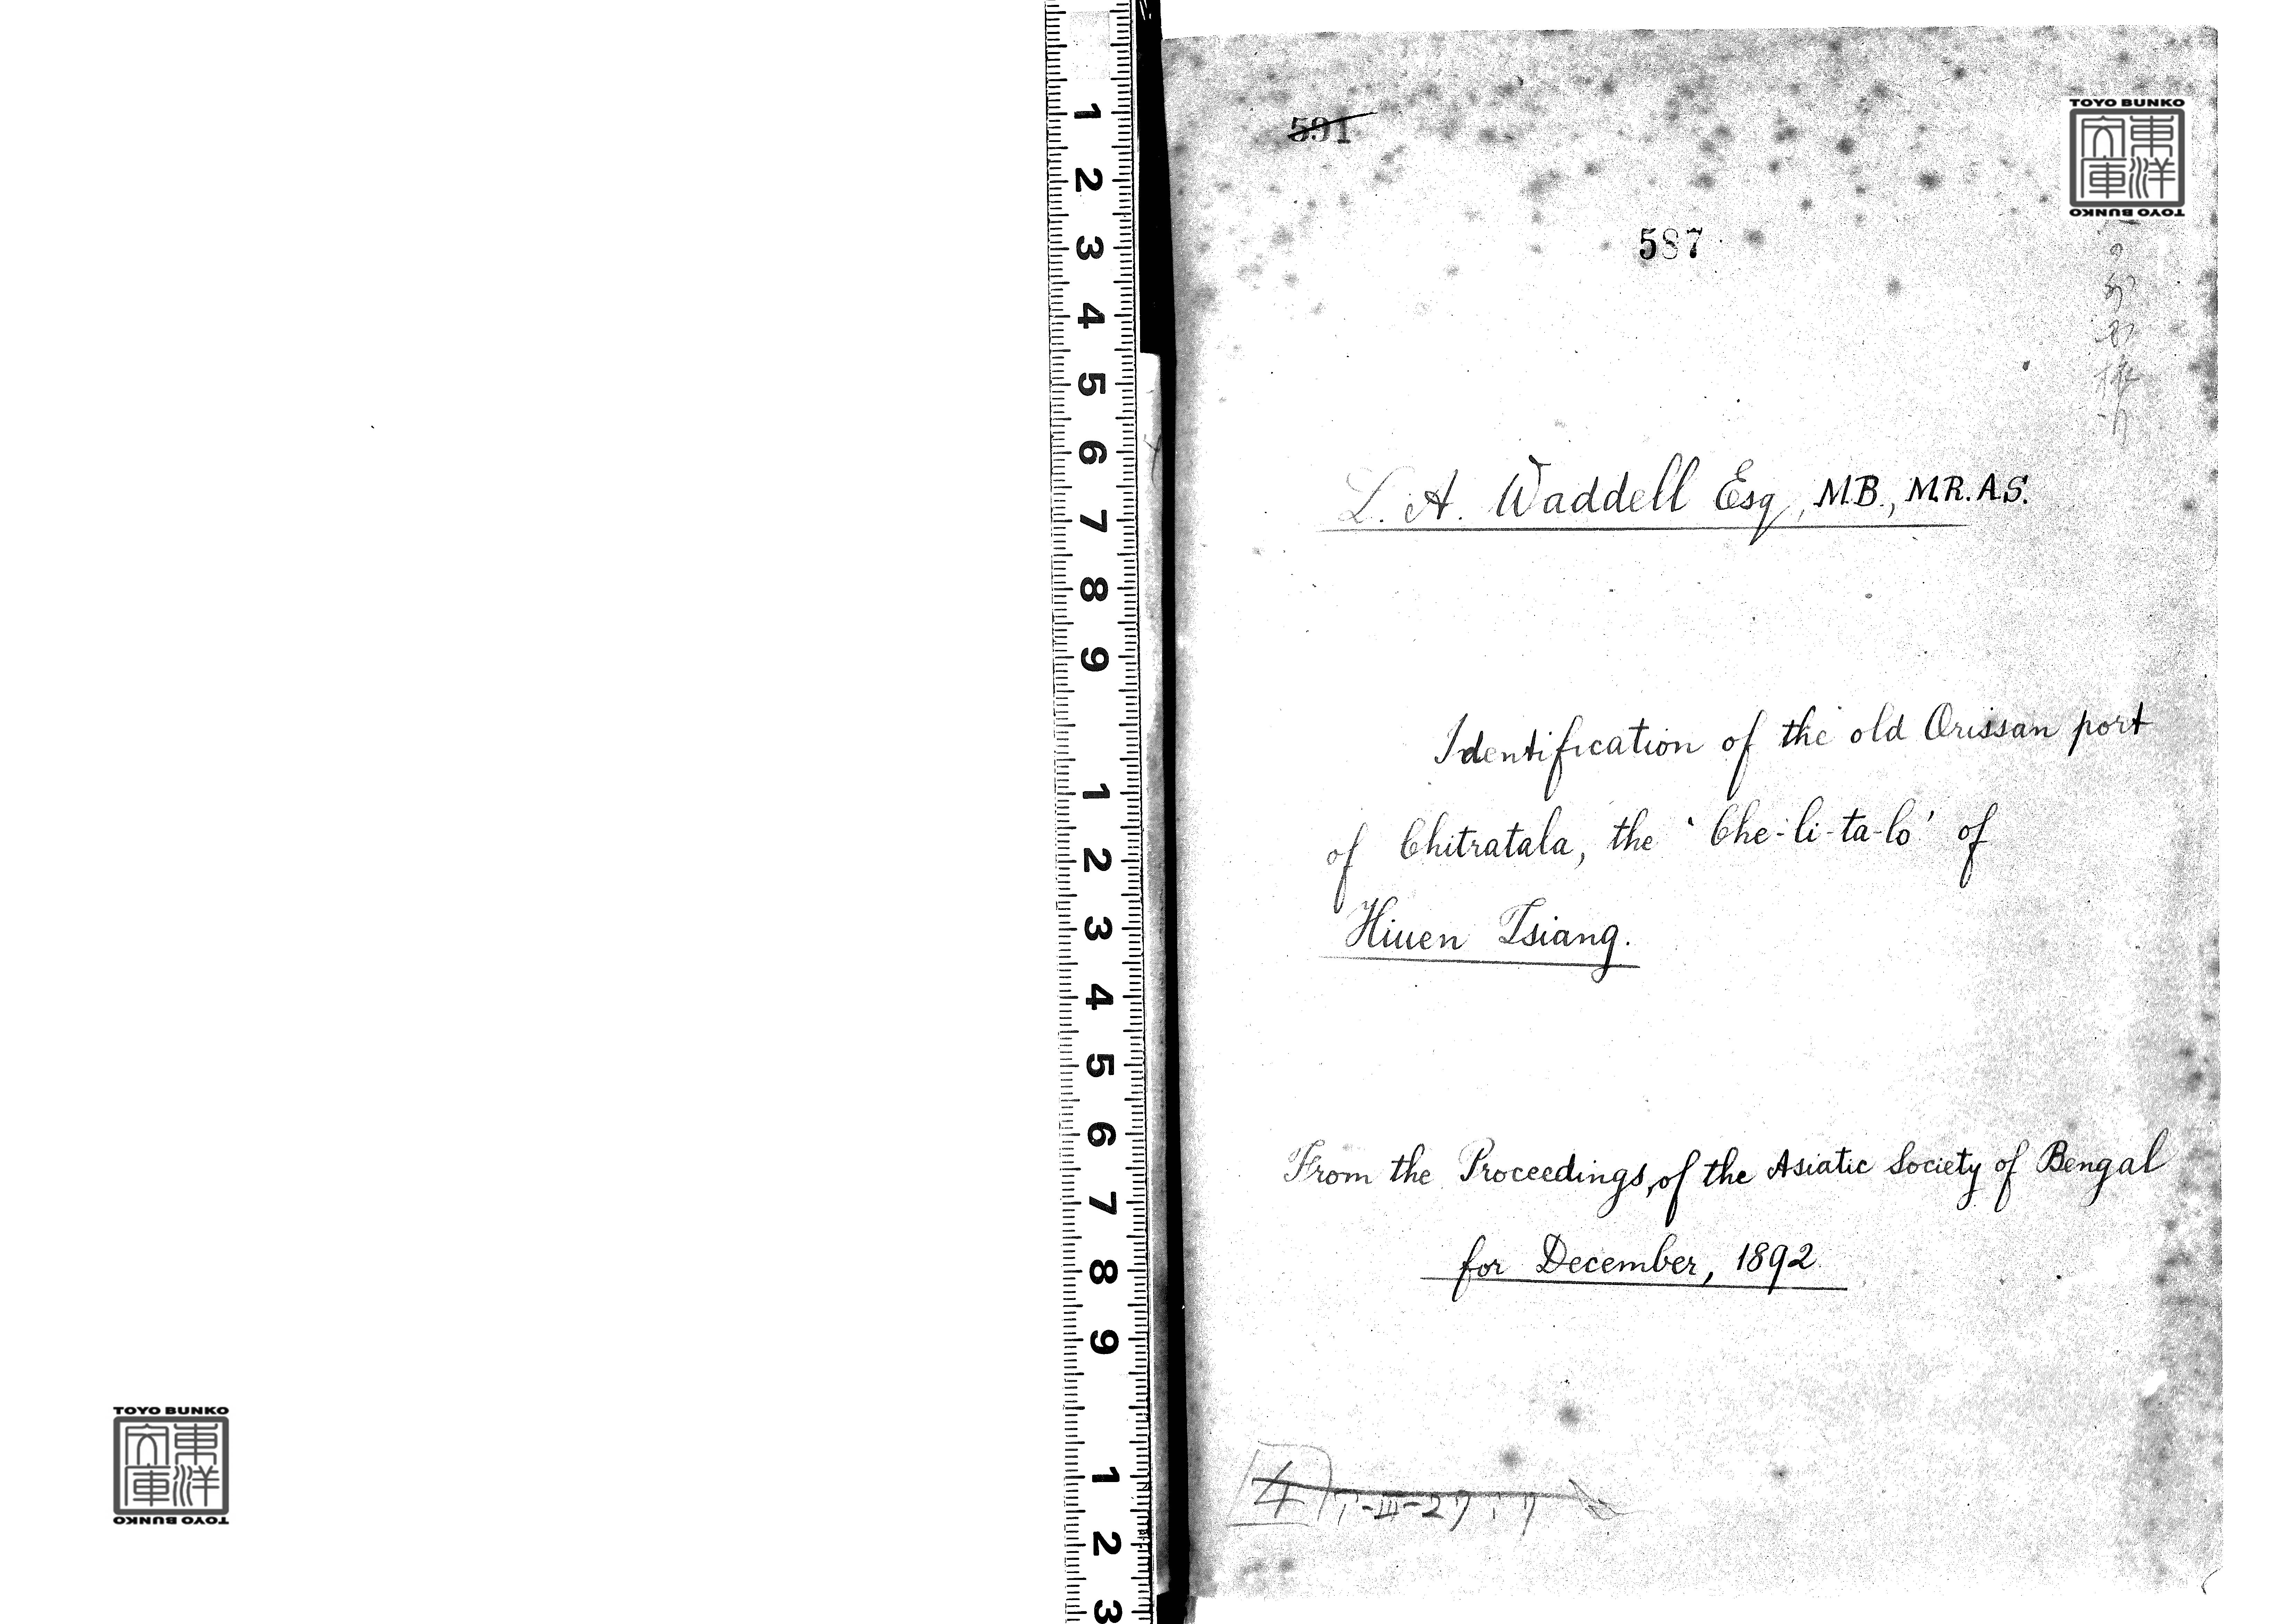 591
TOYO BUNKO
東洋
文庫
TOYO BUNKO
587
L. A. Waddell Esq, M.B., M.R.A.S.
Identification of the old Orissan port
of Chitratala, the 'Che-li-ta-lo' of
Hiuen Tsiang.
From the Proceedings, of the Asiatic Society of Bengal
for December, 1892.
4
1
2
3
4
5
6
7
8
9
1
2
3
4
5
6
7
8
9
1
2
3
TOYO BUNKO
東洋
文庫
TOYO BUNKO